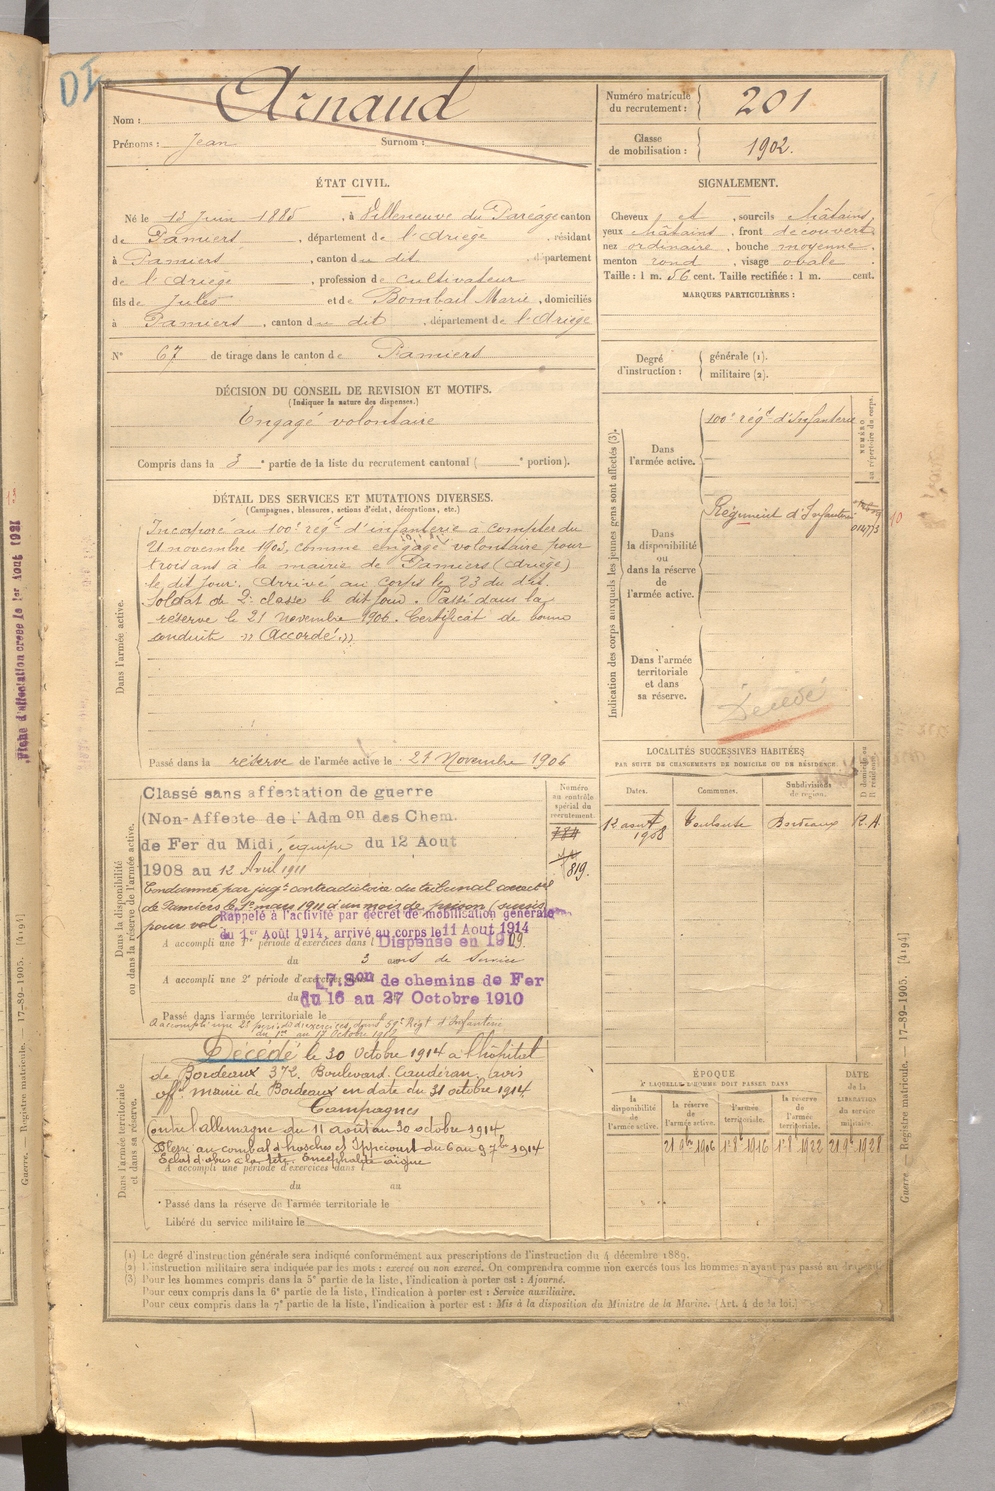 Nom : Arnaud
Prénoms : Jean Surnom :
Numéro matricule
du recrutement : 201
Classe
de mobilisation : 1902.
ÉTAT CIVIL.
Né le 13 Juin 1885, à Villeneuve du Paréage canton
de Pamiers, département de l'Ariège, résidant
à Pamiers, canton du dit, département
de l'Ariège, profession de cultivateur
fils de Jules et de Bombail Marie, domiciliés
à Pamiers, canton du dit, département de l'Ariège
N° 67 de tirage dans le canton de Pamiers
SIGNALEMENT.
Cheveux et, sourcils châtains,
yeux châtains, front découvert
nez ordinaire, bouche moyenne,
menton rond, visage ovale.
Taille : 1 m. 56 cent. Taille rectifiée : 1 m. cent.
MARQUES PARTICULIÈRES :
Degré
d'instruction :
générale (1).
militaire (2).
DÉCISION DU CONSEIL DE REVISION ET MOTIFS.
(Indiquer la nature des dispenses.)
Engagé volontaire
Compris dans la 3e partie de la liste du recrutement cantonal ( e portion).
DÉTAIL DES SERVICES ET MUTATIONS DIVERSES.
(Campagnes, blessures, actions d'éclat, décorations, etc.)
Dans l'armée active.
Incorporé au 100e régt d'infanterie à compter du
21 novembre 1903, comme engagé volontaire pour
trois ans à la mairie de Pamiers (Ariège)
le dit jour. Arrivé au corps le 23 du dit.
Soldat de 2e classe le dit jour. Passé dans la
réserve le 21 novembre 1906. Certificat de bonne
conduite "Accordé"
Passé dans la réserve de l'armée active le 21 Novembre 1906
Indication des corps auxquels les jeunes gens sont affectés (3).
NUMÉRO
au répertoire du corps.
Dans
l'armée active.
100e régt d'Infanterie
Dans
la disponibilité
ou
dans la réserve
de
l'armée active.
Régiment d'Infanterie
014773
Dans l'armée
territoriale
et dans
sa réserve.
Décédé
LOCALITÉS SUCCESSIVES HABITÉES
PAR SUITE DE CHANGEMENTS DE DOMICILE OU DE RÉSIDENCE.
Dates. Communes. Subdivisions
de région. D domicile ou
R résidence.
12 août 1908 Toulouse Bordeaux R.A.
Dans la disponibilité
ou dans la réserve de l'armée active.
Numéro
au contrôle
spécial du
recrutement.
784
819.
Classé sans affectation de guerre
(Non-Affecté de l'Admon des Chem.
de Fer du Midi, équipe du 12 Aout
1908 au 12 Avril 1911
Condamné par jugt contradictoire du tribunal correctel
de Pamiers le 1er mars 1911 à un mois de prison (sursis)
pour vol.
Rappelé à l'activité par décret de mobilisation générale
du 1er Août 1914, arrivé au corps le 11 Aout 1914
A accompli une 1re période d'exercices dans l Dispensé en 1909.
du 3 ans de service
A accompli une 2e période d'exercices 17e Son de chemins de Fer
du 16 au 27 Octobre 1910
Passé dans l'armée territoriale le
A accompli une 2e période d'exercices dans 59e Régt d'Infanterie
du 1er au 17 Octobre 1912
Dans l'armée territoriale
et dans sa réserve.
Décédé le 30 Octobre 1914 à l'hôpital
de Bordeaux 372. Boulevard Caudéran. avis
off. mairie de Bordeaux en date du 31 octobre 1914
Campagnes
Contre l'allemagne du 11 août au 30 octobre 1914
Blessé au combat d'hosches et Ippécourt du 6 au 9 7bre 1914
Eclat d'obus à la tête, Encéphalite aigüe
A accompli une période d'exercices dans l
du au
Passé dans la réserve de l'armée territoriale le
Libéré du service militaire le
ÉPOQUE
À LAQUELLE L'HOMME DOIT PASSER DANS
DATE
de la
LIBÉRATION
du service
militaire.
la
disponibilité
de
l'armée active.
la réserve
de
l'armée active.
l'armée
territoriale.
la réserve
de
l'armée
territoriale.
21 9bre 1906 1er 8bre 1916 1er 8bre 1922 21 9bre 1928
(1) Le degré d'instruction générale sera indiqué conformément aux prescriptions de l'instruction du 4 décembre 1889.
(2) L'instruction militaire sera indiquée par les mots : exercé ou non exercé. On comprendra comme non exercés tous les hommes n'ayant pas passé au drapeau.
(3) Pour les hommes compris dans la 5e partie de la liste, l'indication à porter est : Ajourné.
Pour ceux compris dans la 6e partie de la liste, l'indication à porter est : Service auxiliaire.
Pour ceux compris dans la 7e partie de la liste, l'indication à porter est : Mis à la disposition du Ministre de la Marine. (Art. 4 de la loi.)
Guerre. — Registre matricule. — 17-89-1905. [4194]
Guerre. — Registre matricule. — 17-89-1905. [4194]